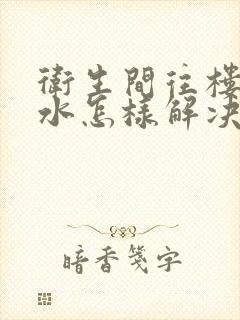 衛生間往樓
水怎樣解决
暗香箋字